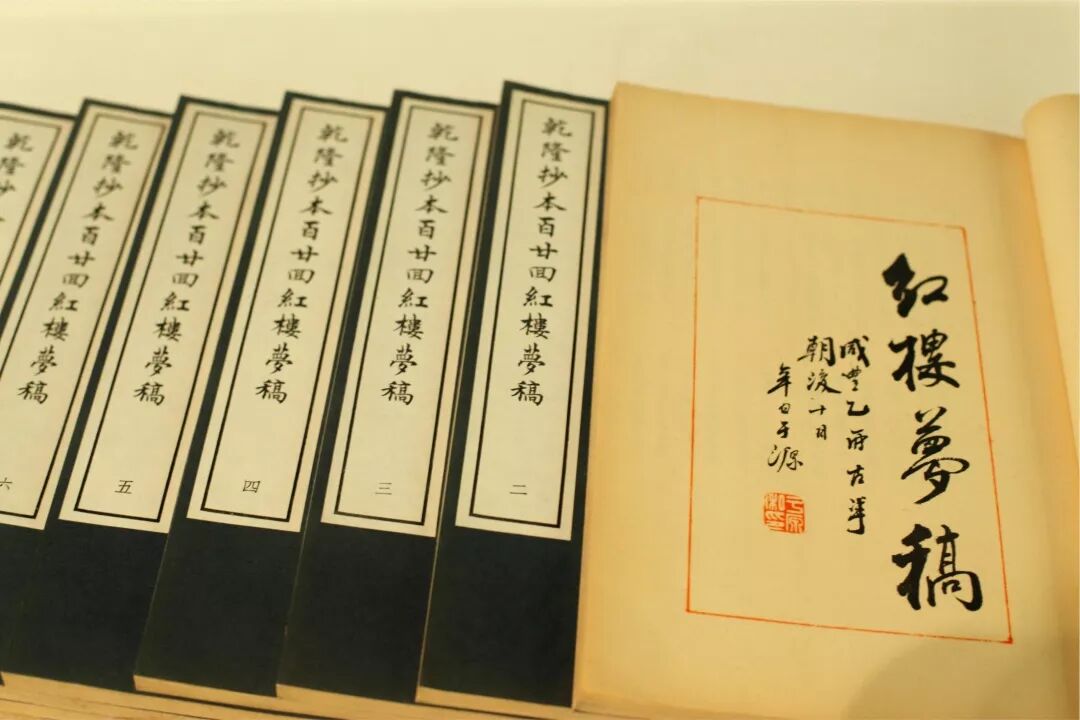 紅樓夢稿
咸豐乙卯古華
朝後十日
辛白于源
于源私印
乾隆抄本百廿回紅樓夢稿
二
乾隆抄本百廿回紅樓夢稿
三
乾隆抄本百廿回紅樓夢稿
四
乾隆抄本百廿回紅樓夢稿
五
乾隆抄本百廿回紅樓夢稿
乾隆抄
六